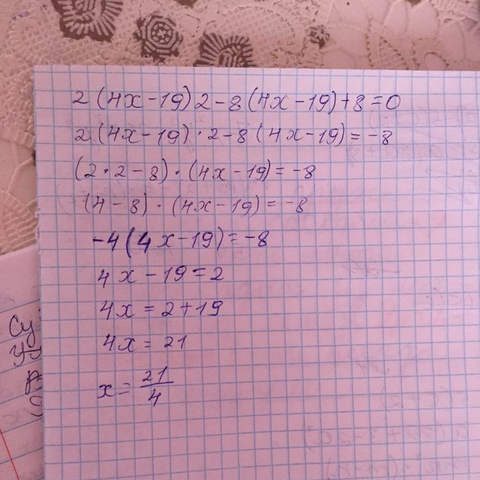 2(4x-19)2-8(4x-19)+8=0
2(4x-19)·2-8(4x-19)=-8
(2·2-8)·(4x-19)=-8
(4-8)·(4x-19)=-8
-4(4x-19)=-8
4x-19=2
4x=2+19
4x=21
x=21/4
Су